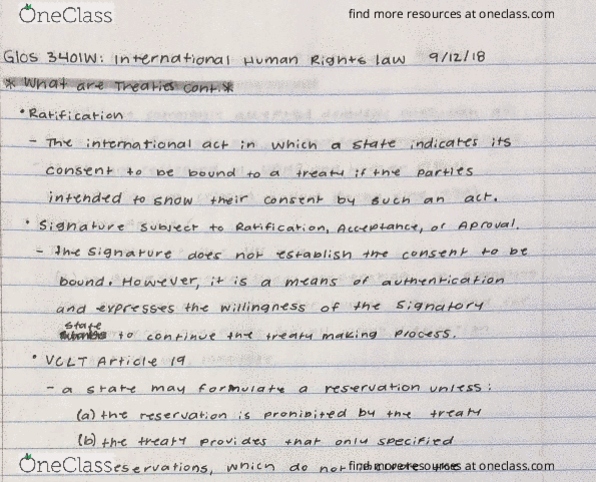 OneClass find more resources at oneclass.com
Glos 3401W: International Human Rights law 9/12/18
* What are Treaties cont.*
• Ratification
- The international act in which a state indicates its
consent to be bound to a treaty if the parties
intended to show their consent by such an act.
• Signature subject to Ratification, Acceptance, or Aproval.
- the signature does not establish the consent to be
bound. However, it is a means of authentication
and expresses the willingness of the signatory
state
to continue the treaty making process.
• VCLT Article 19
- a state may formulate a reservation unless:
(a) the reservation is prohibited by the treaty
(b) the treaty provides that only specified
OneClass eservations, which do not find more resources at oneclass.com